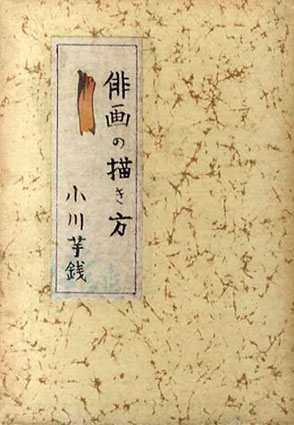 俳画の描き方
小川芋銭